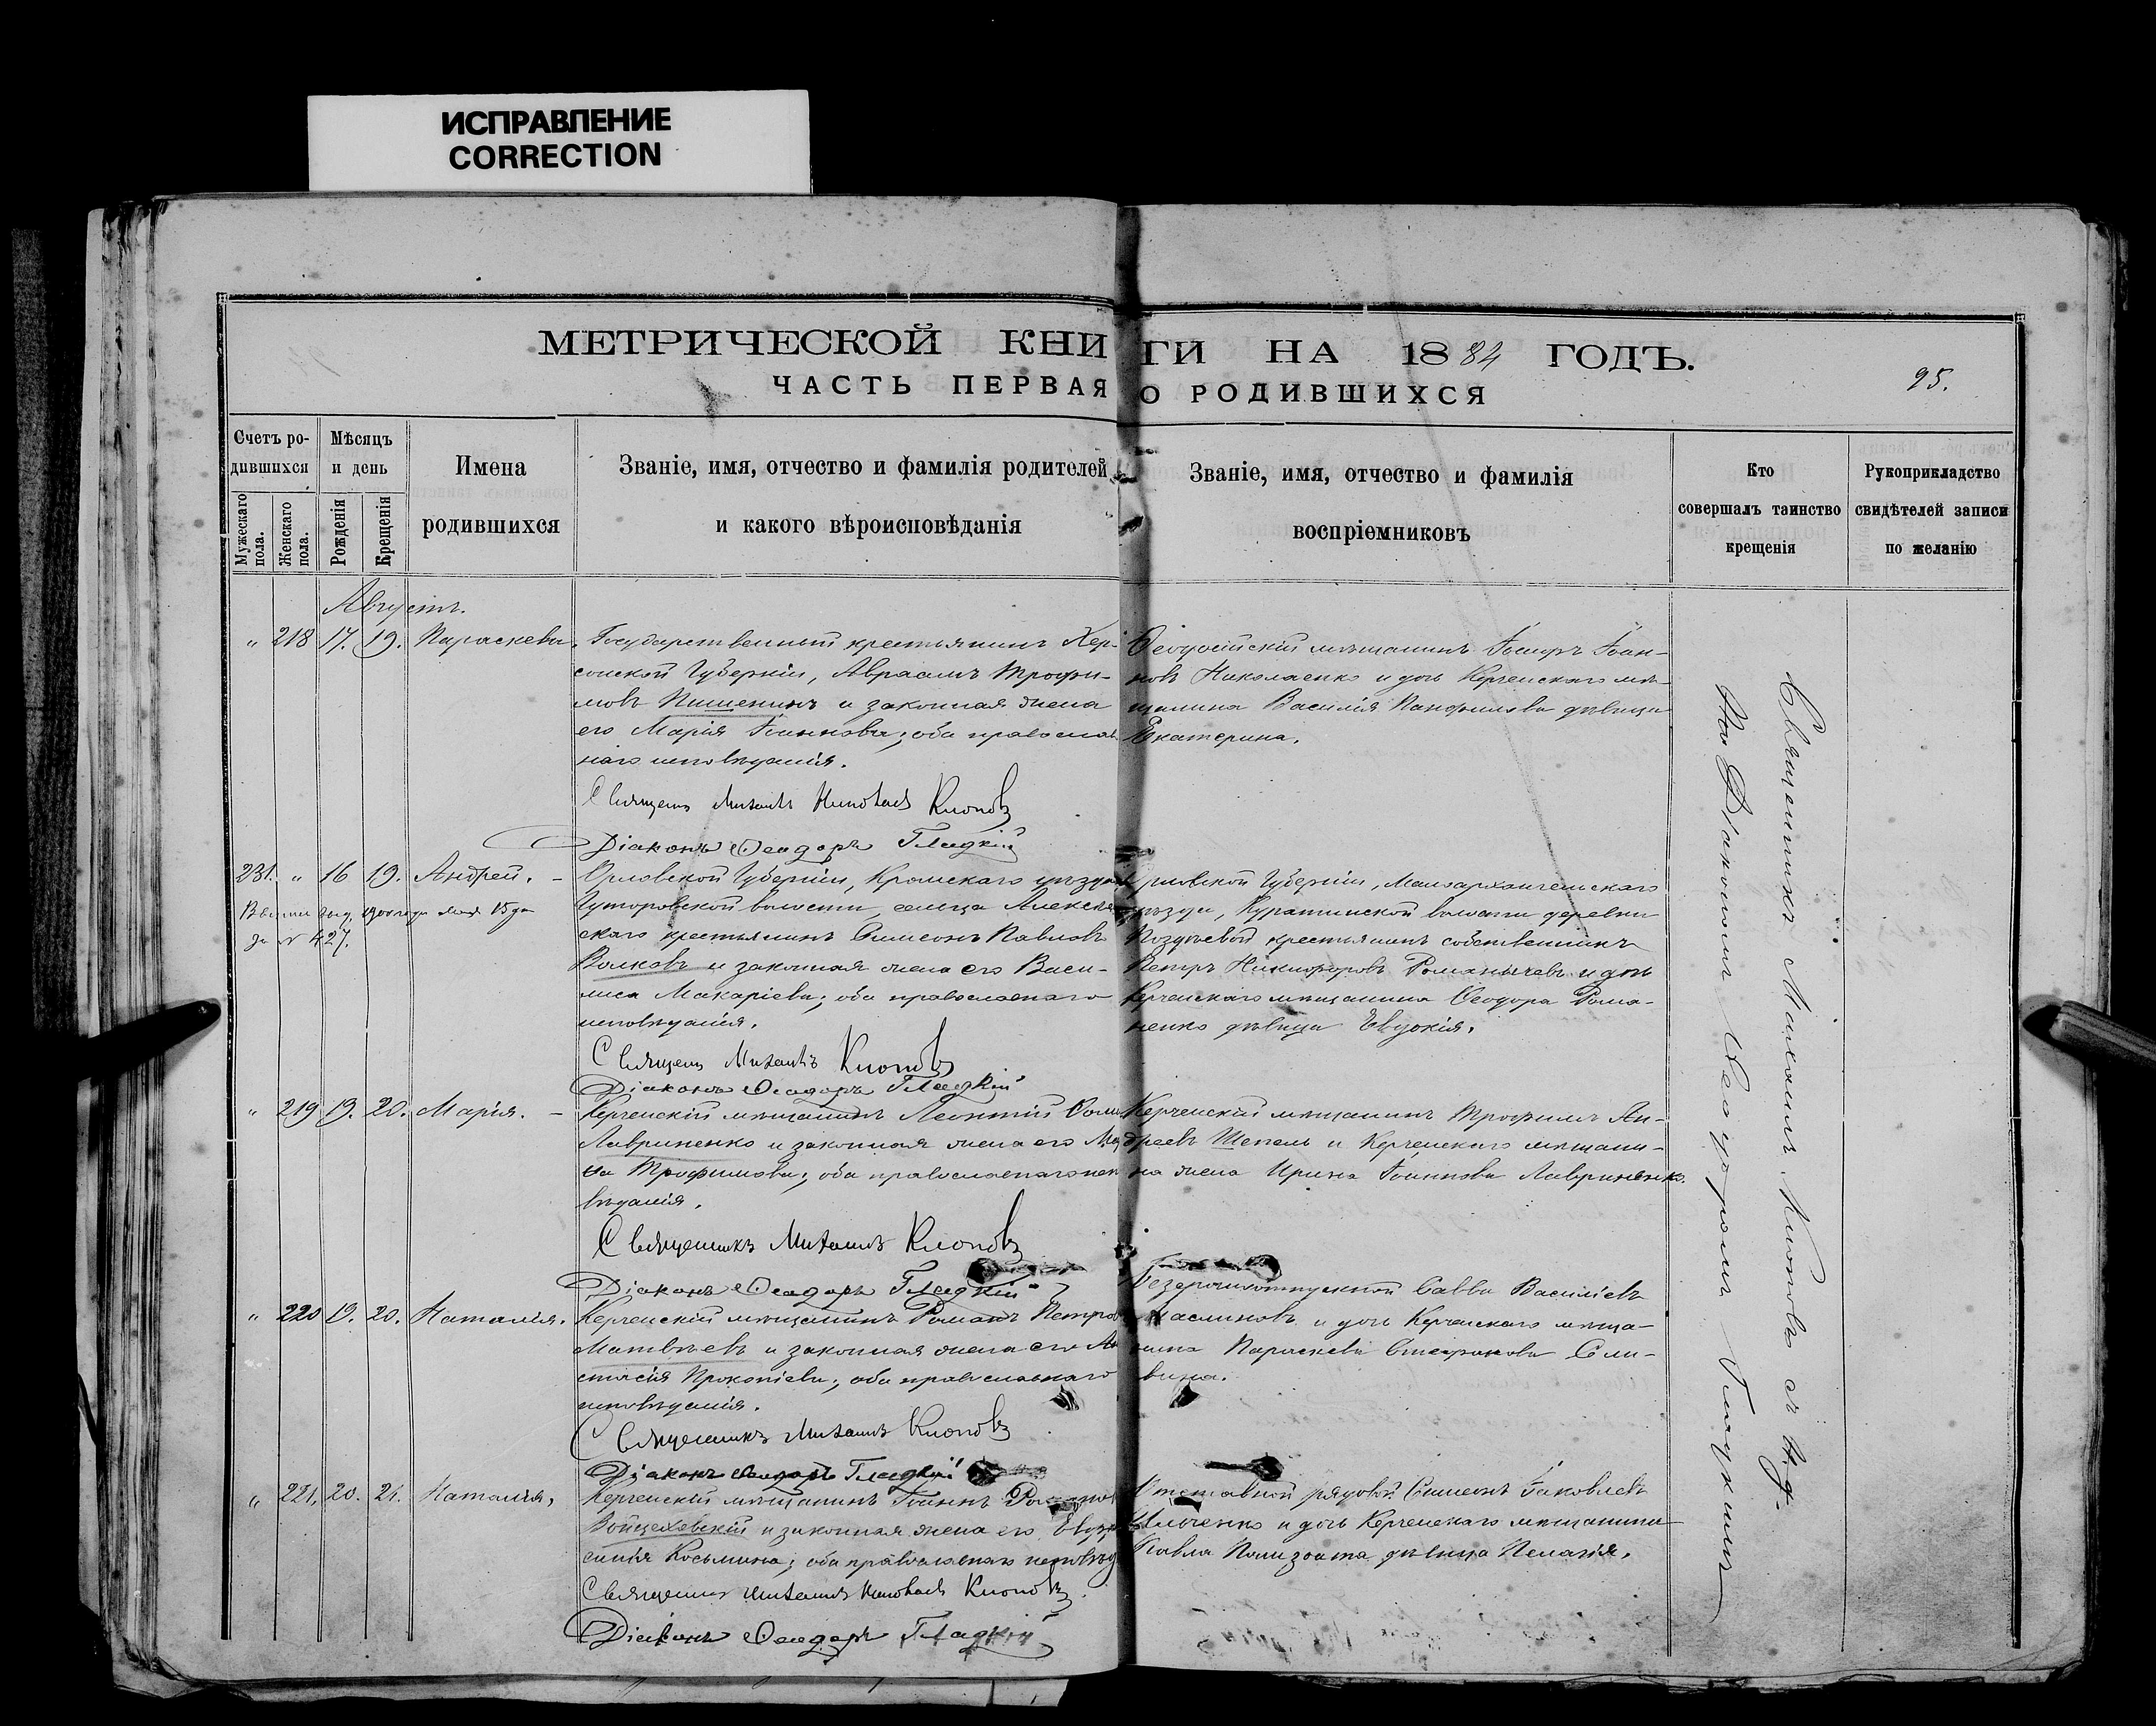 ИСПРАВЛЕНИЕ
CORRECTION
МЕТРИЧЕСКОЙ КНИГИ НА 1884 ГОДЪ.
ЧАСТЬ ПЕРВАЯ О РОДИВШИХСЯ
95.
Счетъ ро-
дившихся
Мужескаго пола.
Женскаго пола.
Мѣсяцъ
и день
Рожденія
Крещенія
Имена
родившихся
Званіе, имя, отчество и фамилія родителей
и какого вѣроисповѣданія
Званіе, имя, отчество и фамилія
воспріемниковъ
Кто
совершалъ таинство
крещенія
Рукоприкладство
свидѣтелей записи
по желанію
Августъ.
„ 218 17. 19. Параскева.
Государственный крестьянинъ Хер-
сонской Губерніи, Авраамъ Трофи-
мовъ Пишенинъ и законная жена
его Марія Іоаннова; оба православ-
наго исповѣданія.
Священ Михаилъ Николаев Клоповъ
Діаконъ Ѳеодоръ Гладкій
Ѳеодосійскій мѣщанинъ Іосифъ Іоан-
новъ Николаенко и дочь Керченскаго мѣ-
щанина Василія Панфилова дѣвица
Екатерина.
231. „ 16 19. Андрей. –
1900 года мая 15 дня
за № 427.
Орловской Губерніи, Кромскаго уѣзда
Гуторовской волости, сельца Алексѣев
скаго крестьянинъ Симеонъ Павловъ
Волковъ и законная жена его Васи-
лиса Макаріева; оба православнаго
исповѣданія.
Священ Михаилъ Клоповъ
Діаконъ Ѳеодоръ Гладкій
Орловской Губерніи, Малоархангельскаго
уѣзда, Куратинской волости деревни
Поздѣевой крестьянинъ собственникъ
Петръ Никифоровъ Романычевъ и дочь
Керченскаго мѣщанина Ѳеодора Рома-
ненко дѣвица Евдокія.
„ 219 19. 20. Марія. –
Керченскій мѣщанинъ Леонтій
Лавриненко и законная жена его
на Трофимова; оба православнаго испо
вѣданія.
Священникъ Михаилъ Клоповъ
Діаконъ Ѳеодоръ Гладкій
Керченскій мѣщанинъ Трофимъ Ан-
дреевъ Шепель и Керченскаго мѣщани-
на жена Ирина Іоаннова Лавриненко.
„ 220 19. 20. Наталія.
Керченскій мѣщанинъ Романъ Петровъ
Матвѣевъ и законная жена его Ана
стасія Прокопіева; оба православнаго
исповѣданія.
Священникъ Михаилъ Клоповъ
Діаконъ Ѳеодоръ Гладкій
Безсрочноотпускной Савва Василіевъ
Масликовъ и дочь Керченскаго мѣща-
нина Параскева Стефанова Сли-
вина.
„ 221. 20. 21. Наталія,
Керченскій мѣщанинъ Іоаннъ
Войцеховскій и законная жена его Евдо
Косьмина; оба православнаго исповѣд
Священникъ Михаилъ Николаев Клоповъ
Діаконъ Ѳеодоръ Гладкій
Отставной рядовой Симеонъ Іаковлевъ
Ильченко и дочь Керченскаго мѣщанина
Павла дѣвица Пелагія.
Священникъ Михаилъ Клоповъ съ И. д.
Діакономъ Ѳеодоромъ Гладкимъ